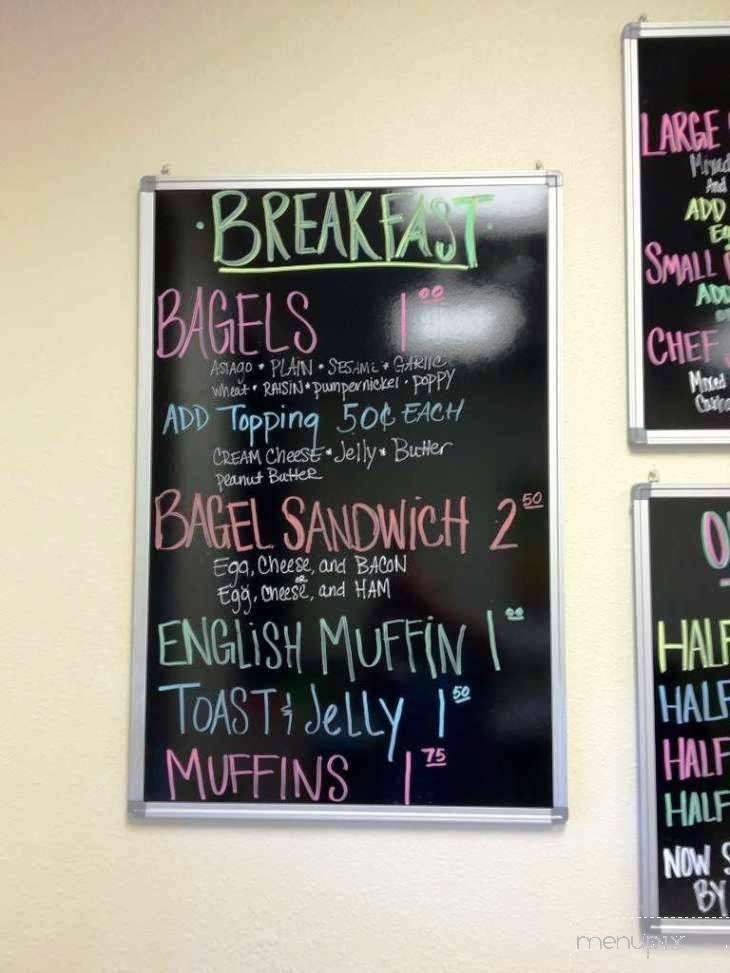 ·BREAKFAST·
BAGELS 1.00
Asiago • PLAIN • SESAME • GARLIC
Wheat • RAISIN • pumpernickel • POPPY
ADD Topping 50¢ EACH
CREAM CHEESE • Jelly • Butter
peanut Butter
BAGEL SANDWICH 2 50
Egg, Cheese, and BACON
OR
Egg, Cheese, and HAM
ENGLISH MUFFIN 1 00
TOAST & Jelly 1 50
MUFFINS 1 75
LARGE
Mixed
And
ADD
SMALL
ADD
CHEF
Mixed
HALF
HALF
HALF
HALF
NOW
BY
menupix